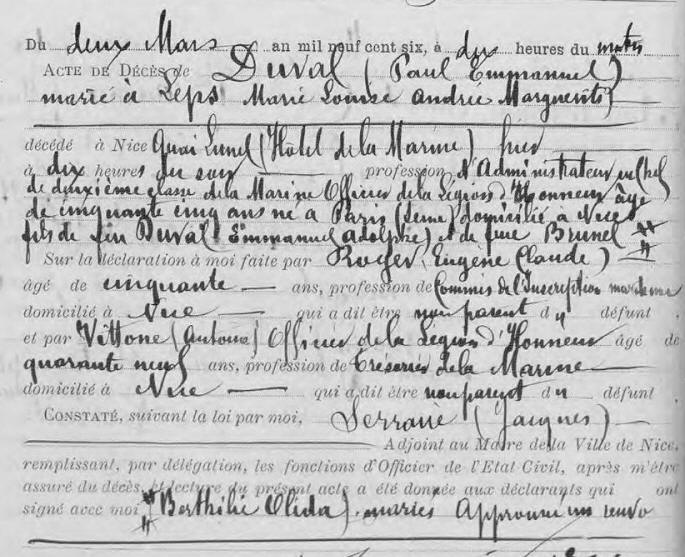 Du deux Mars an mil neuf cent six, à dix heures du matin
ACTE DE DÉCÈS de Duval (Paul Emmanuel)
marié à Leps Marie Louise Andrée Marguerite
décédé à Nice Quai Lunel (Hôtel de la Marine) hier
à dix heures du soir profession d'Administrateur en Chef
de deuxième classe de la Marine Officier de la Légion d'Honneur âgé
de cinquante cinq ans né à Paris (Seine) domicilié à Nice
fils de feu Duval Emmanuel Adolphe) & de feue Brunel #
Sur la déclaration à moi faite par Roger, Eugène Claude)
âgé de cinquante ans, profession de Commis de l'Inscription maritime
domicilié à Nice qui a dit être non parent du défunt,
et par Vittone (Antoine) Officier de la Légion d'Honneur âgé de
quarante neuf ans, profession de Trésorier de la Marine
domicilié à Nice qui a dit être non parent du défunt
CONSTATÉ, suivant la loi par moi, (Jacques)
Adjoint au Maire de la Ville de Nice,
remplissant, par délégation, les fonctions d'Officier de l'Etat Civil, après m'être
assuré du décès, et lecture du présent acte a été donnée aux déclarants qui ont
signé avec moi # (Berthilie Olida) mariés Approuvé un renvo